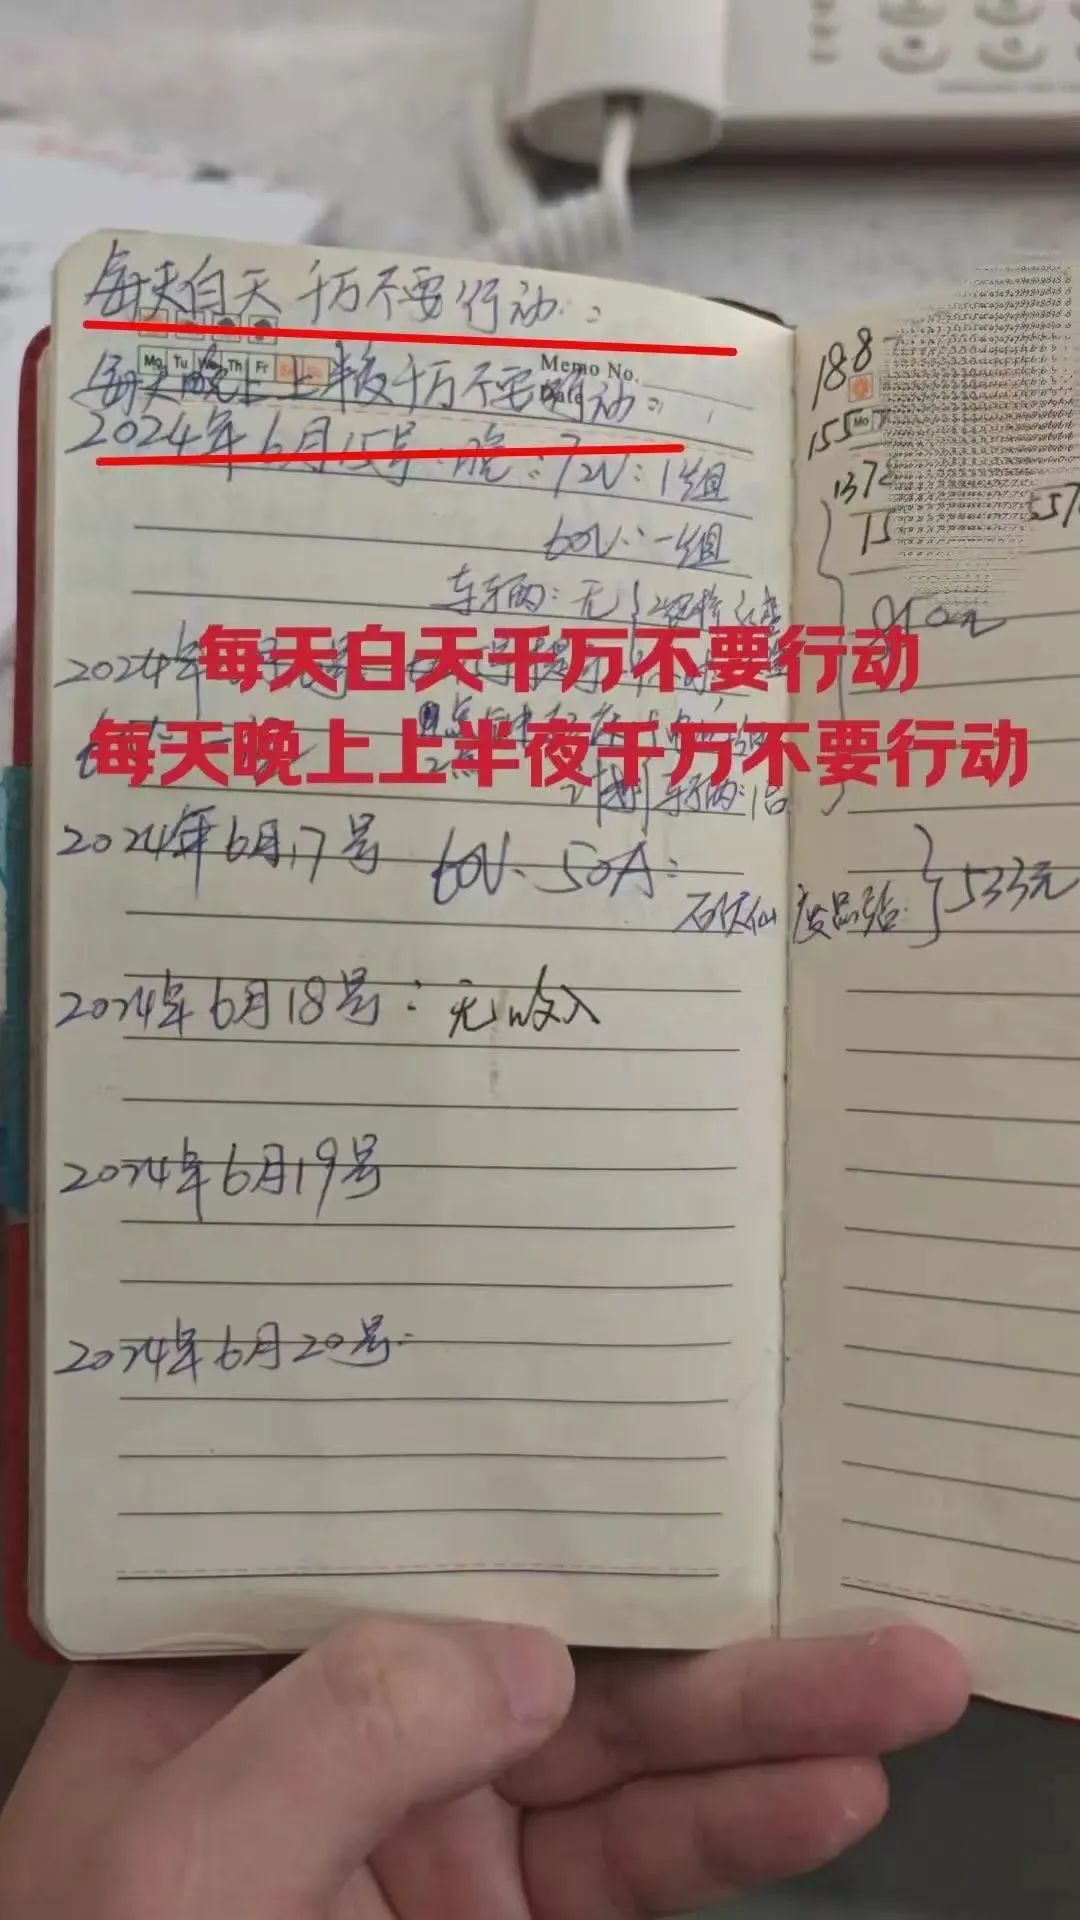 每天白天千万不要行动:
Mo Tu We Th Fr
Memo No.
每天晚上上半夜千万不要行动:
2024年6月15号:晚:72V:1组
60V:一组
车辆:无
每天白天千万不要行动
每天晚上上半夜千万不要行动
2024年
车辆:1台
2024年6月17号 60V、50A:
废品站:
2024年6月18号:无收入
2024年6月19号
2024年6月20号
188
155
Mo
137
15
557
533元